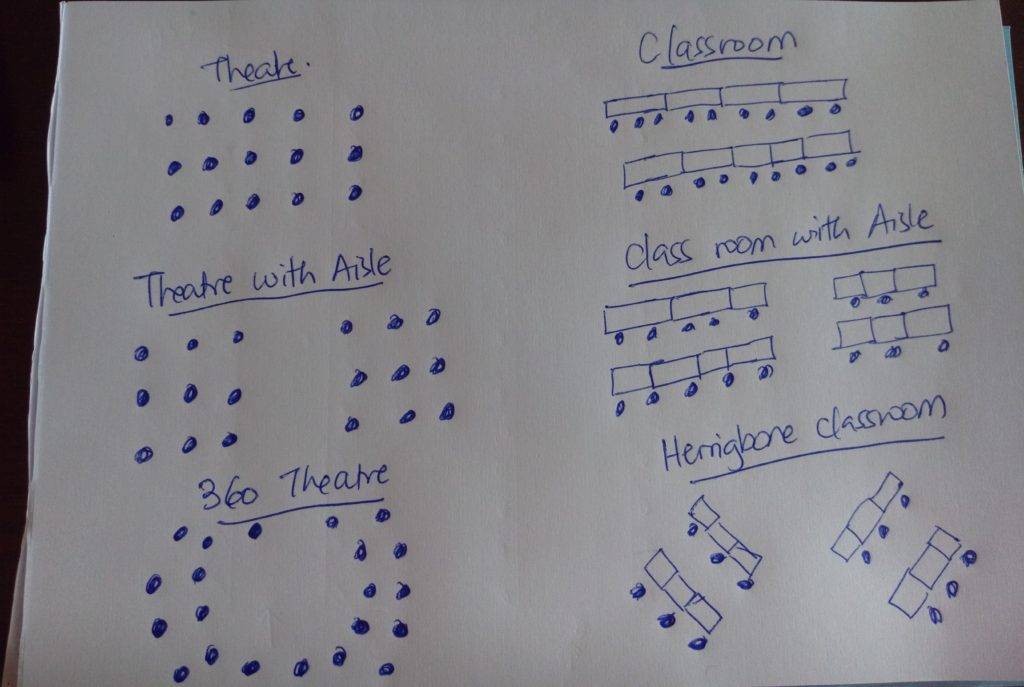 Theatre.
Theatre with Aisle
360 Theatre
Classroom
Class room with Aisle
Herrigbone classroom